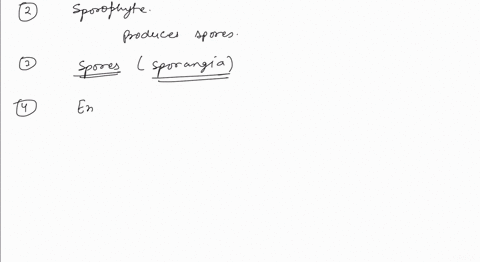 2 Sporophyte.
produces spores.
3 Spores (Sporangia)
4 En